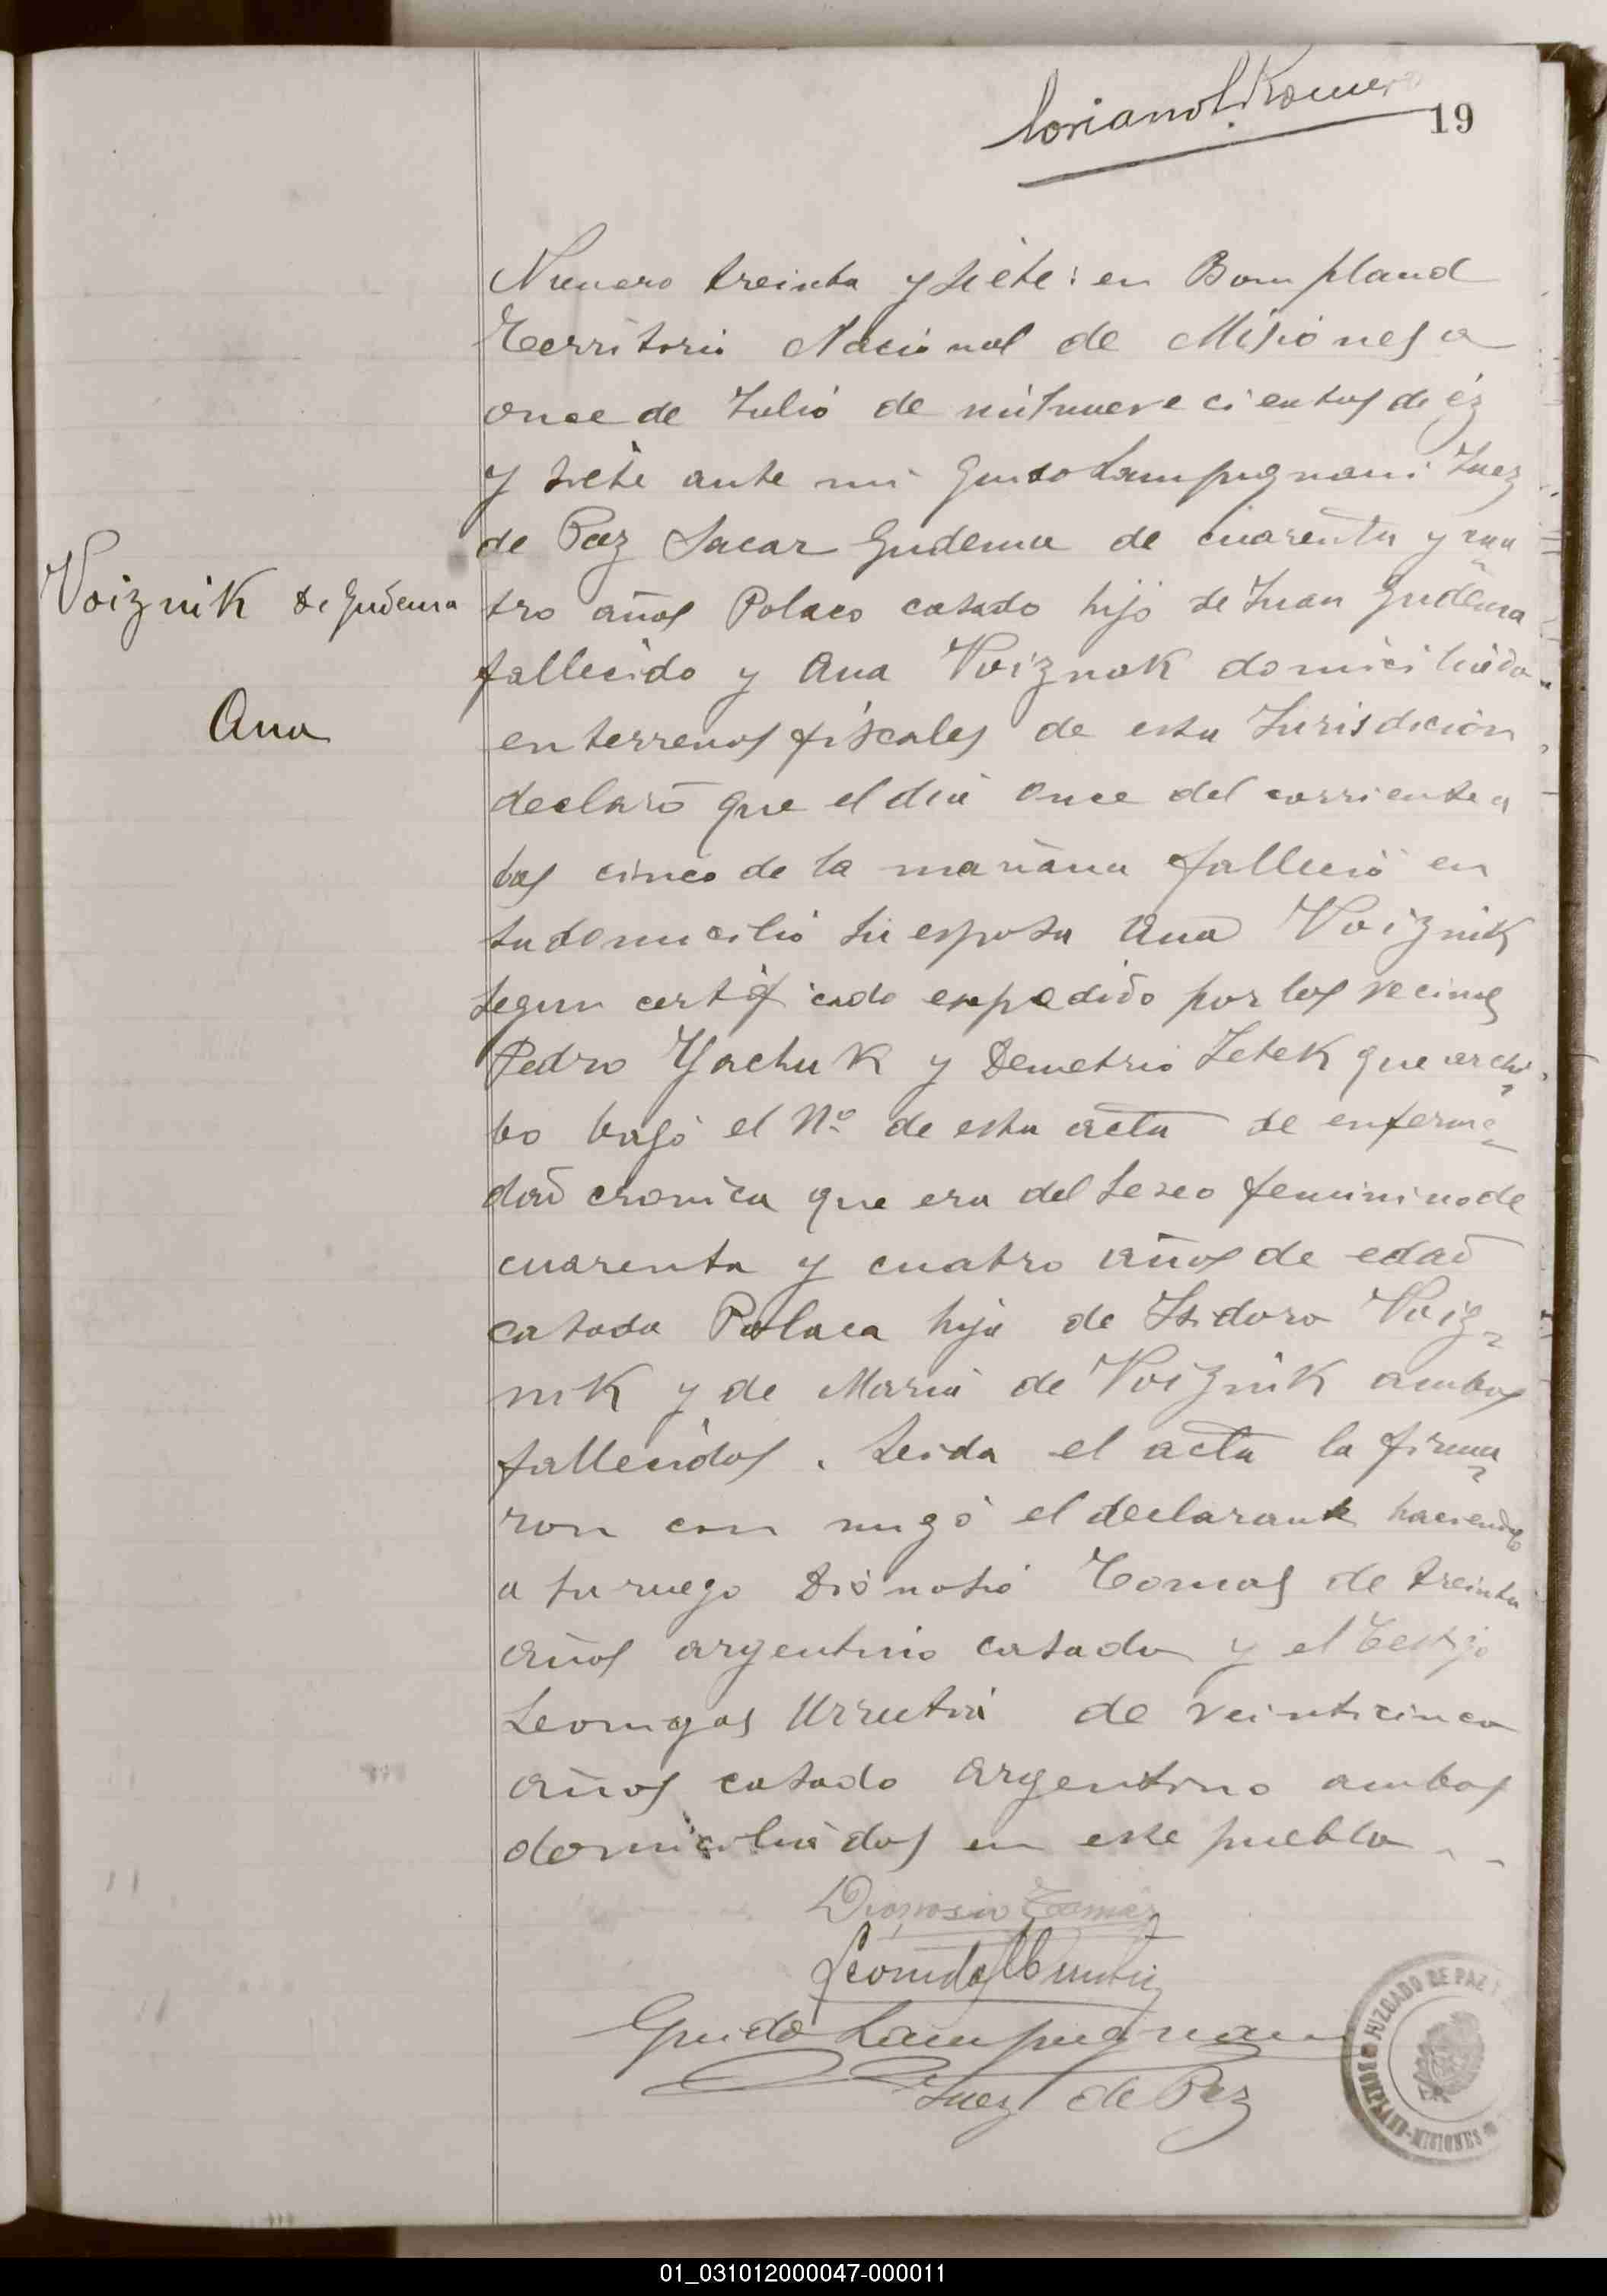 Loriano L. Romero
19
Numero treinta y siete: en Bompland
Territorio Nacional de Misiones a
once de Julio de mil nueve cientos diéz
y siete ante mi Guido Lampugnani Juez
de Paz Sacar Gudema de cuarenta y cua
Voiznik de Gudema
tro años Polaco casado hijo de Juan Gudema
fallecido y Ana Voiznok domiciliado
Ana
en terrenos fiscales de esta Jurisdicion
declaró que el dia once del corriente a
las cinco de la mañana falleció en
su domicilio su esposa Ana Voiznik
segun certificado expedido por los vecinos
Pedro Yachuk y Demetrio Zetek que archi
bo bajo el Nº de esta acta de enferme
dad cronica que era del sexo feminino de
cuarenta y cuatro años de edad
casada Polaca hija de Isidoro Voiz
nik y de Maria de Voiznik ambos
fallecidos. Leida el acta la firma
ron con migo el declarante haciendolo
a su ruego Dionosio Tomas de treinta
años argentino casado y el testigo
Leonigas Urrutia de veinticinco
años casado argentino ambos
domiciliados en este pueblo
Dionosio Tomas
Leonidas Urrutia
Guido Lampugnani
Juez de Paz
JUZGADO DE PAZ
BOMPLAND-MISIONES
01_031012000047-000011